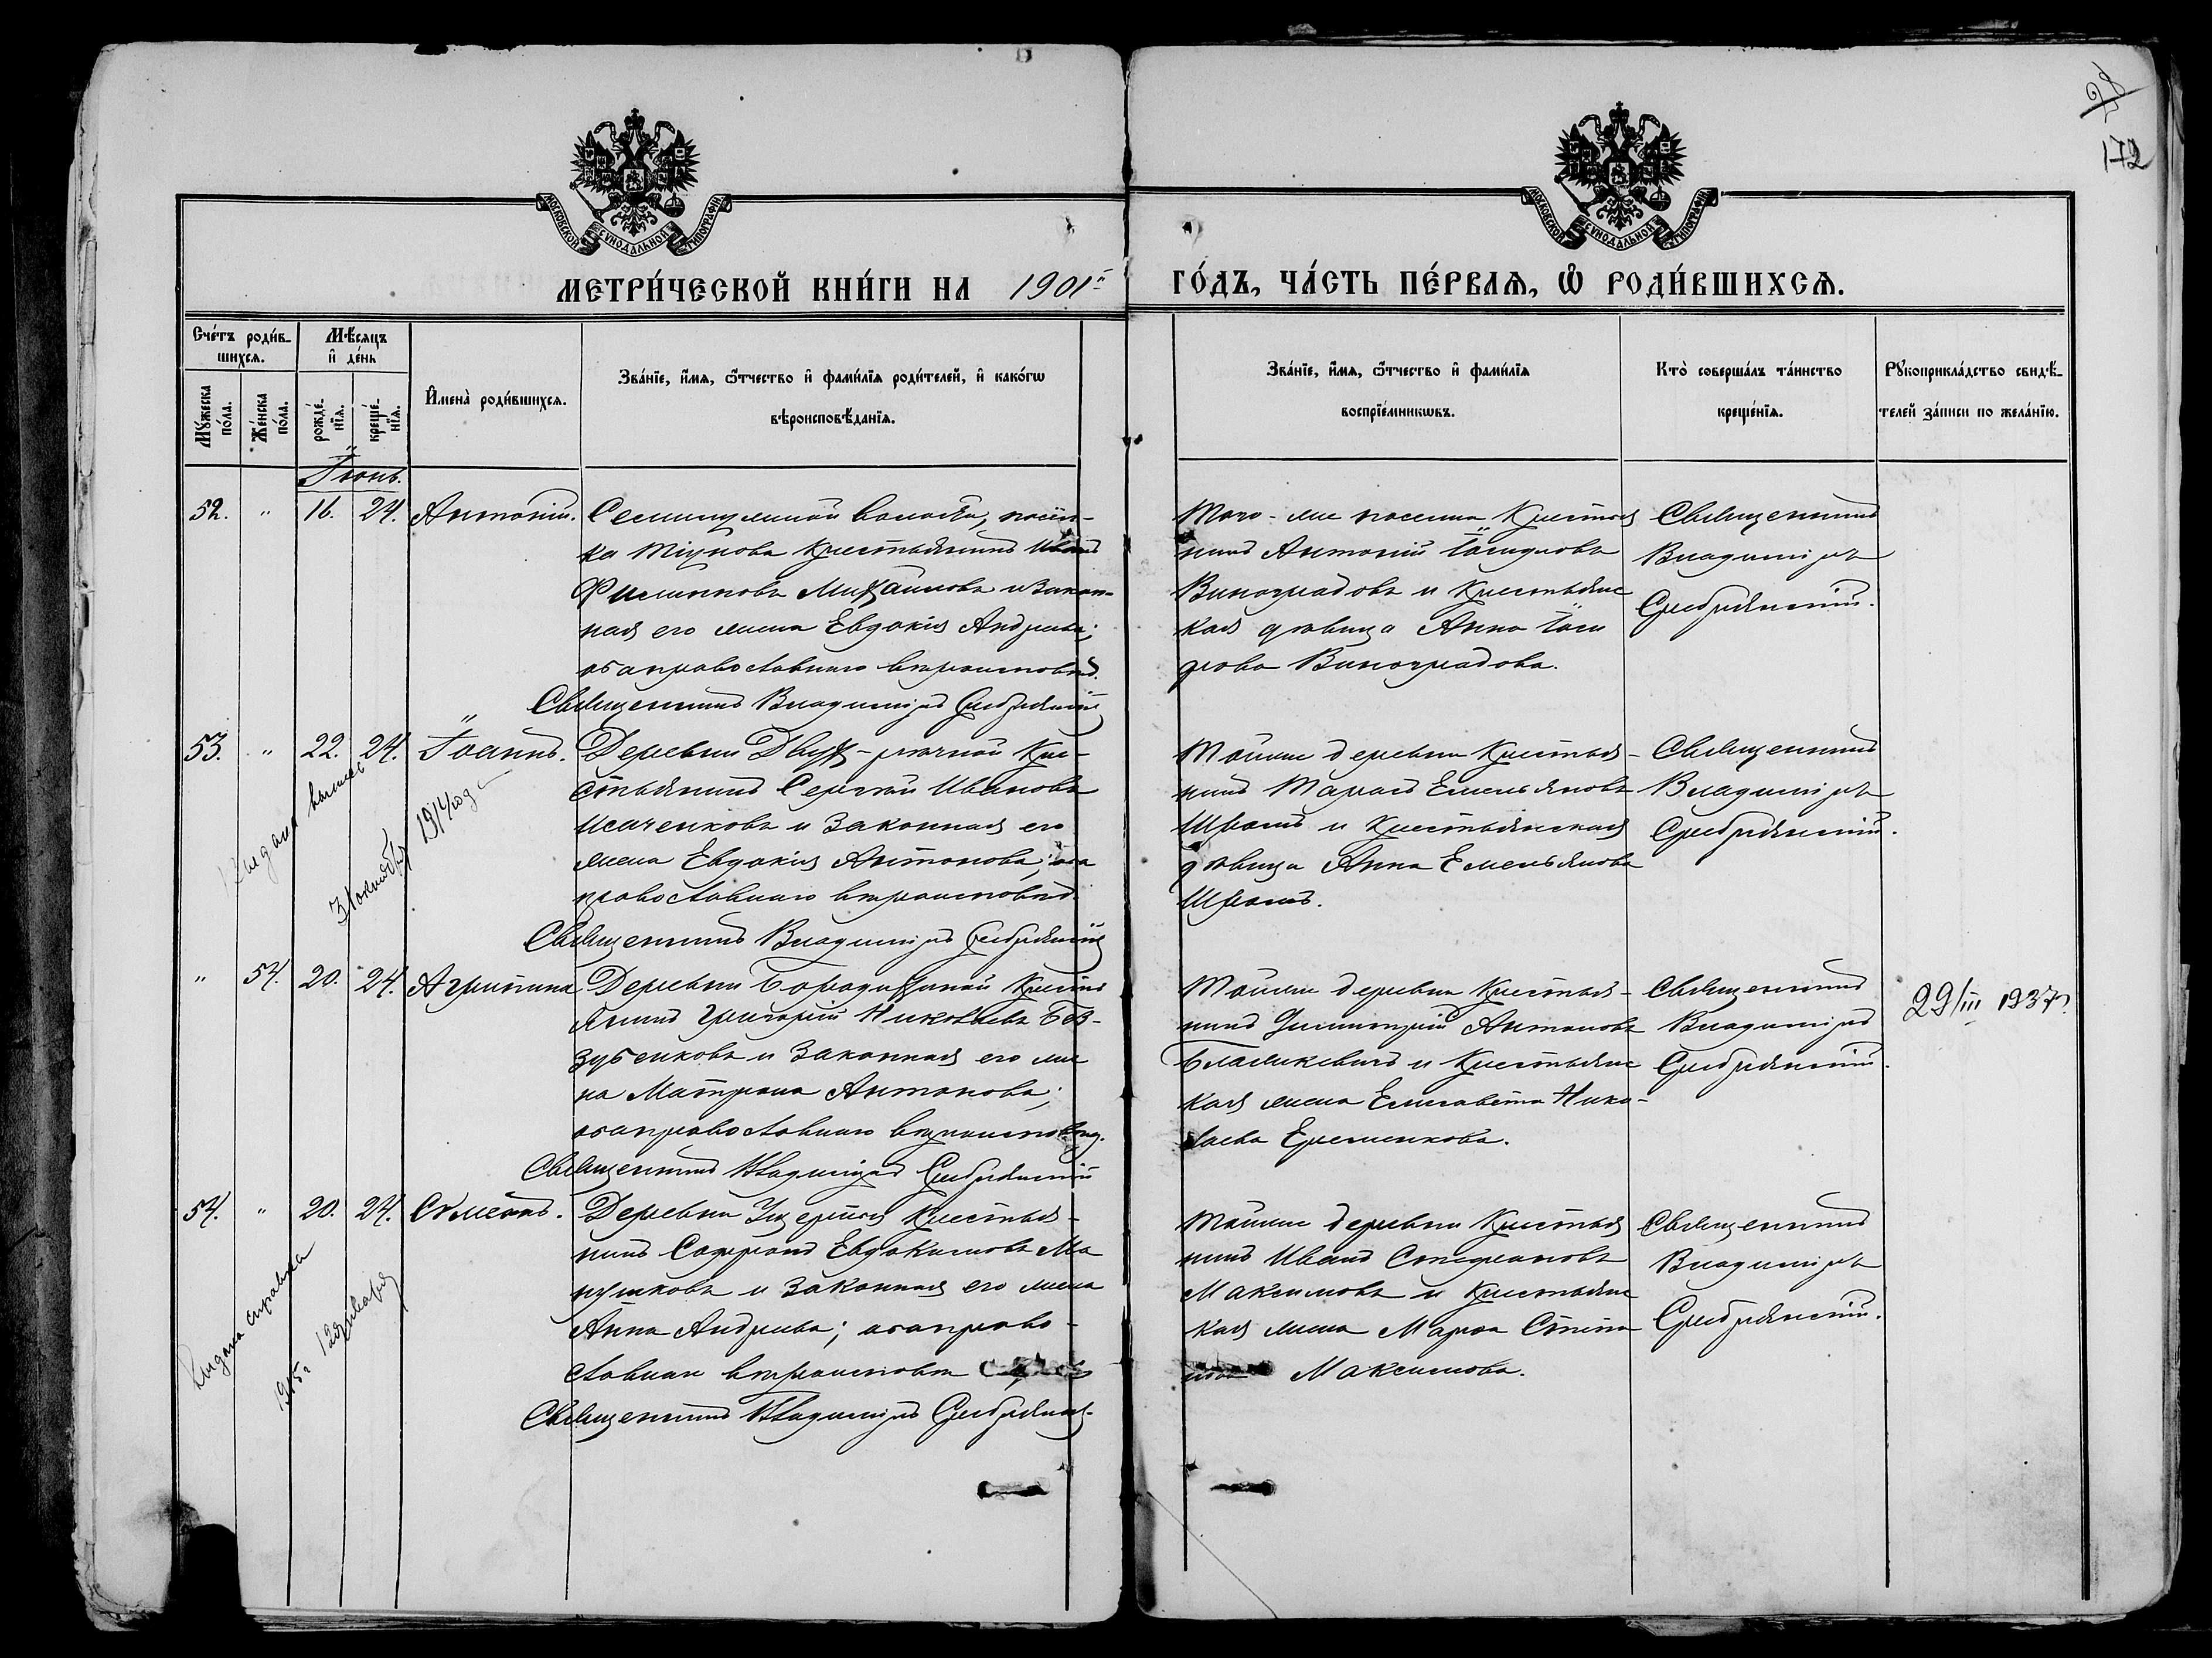 28
172
МОСКОВСКОЙ СѴНОДАЛЬНОЙ ТИПОГРАФІИ
МОСКОВСКОЙ СѴНОДАЛЬНОЙ ТИПОГРАФІИ
МЕТРИ́ЧЕСКОЙ КНИ́ГИ НА 1901й
ГО́ДЪ, ЧА́СТЬ ПЕ́РВАѦ, Ѡ҆ РОДИ́ВШИХСѦ.
Сче́тъ роди́в-
шихсѧ.
Мꙋ́жеска
по́ла.
Же́нска
по́ла.
Мѣ́сѧцъ
и҆ де́нь
рожде́-
нїѧ.
креще́-
нїѧ.
И҆мена̀ роди́вшихсѧ.
Зва́нїе, и҆́мѧ, ѻ҆́тчество и҆ фами́лїѧ роди́телей, и҆ како́гѡ
вѣроисповѣ́данїѧ.
Зва́нїе, и҆́мѧ, ѻ҆́тчество и҆ фами́лїѧ
воспрїе́мникѡвъ.
Кто̀ соверша́лъ та́инство
креще́нїѧ.
Рꙋкоприкла́дство свидѣ́-
телей за́писи по жела́нїю.
Іюнь.
52. " 16. 24. Антоній.
волости, посел-
ка крестьянинъ Иванъ
Филиповъ Михаиловъ и закон-
ная его жена Евдокія Андреева;
оба православнаго вѣроисповѣд.
Священникъ Владиміръ Серебрянскій
Того-же поселка крестья
нинъ Антоній
Виноградовъ и крестьянс
кая дѣвица Анна
Виноградова.
Священникъ
Владиміръ
Серебрянскій.
53. " 22. 24. Іоаннъ.
Деревни Двух-рѣчной кре-
стьянинъ Сергѣй Ивановъ
Исаченковъ и законная его
жена Евдокія Антонова; оба
православнаго вѣроисповѣд.
Священникъ Владиміръ Серебрянскій
Тойже деревни крестья-
нинъ Тарасъ Емельяновъ
и крестьянская
дѣвица Анна Емельянова
Священникъ
Владиміръ
Серебрянскій.
Выдана выпись
31 октября 1914 год
" 54. 20. 24. Агрипина
Деревни Бородинской крестья
янинъ Григорій Николаевъ Без-
зубенковъ и законная его же
на Матрона Антонова;
оба православнаго вѣроисповѣд.
Священникъ Владиміръ Серебрянскій
Тойже деревни крестья-
нинъ Димитрій Антоновъ
и крестьянс
кая жена Елисавета Нико-
лаева Еременкова.
Священникъ
Владиміръ
Серебрянскій.
29/III 1937г.
54. " 20. 24. Сѵмеонъ.
Деревни крестья-
нинъ Софронъ Евдокимовъ Ма
и законная его жена
Анна Андреева; оба право-
славнаго вѣроисповѣ
Священникъ Владиміръ Серебрянск.
Тойже деревни крестья
нинъ Иванъ Стефановъ
Максимовъ и крестьянс
кая жена Марѳа Степа
нова Максимова.
Священникъ
Владиміръ
Серебрянскій.
Выдана справка
1915 г. 12 января